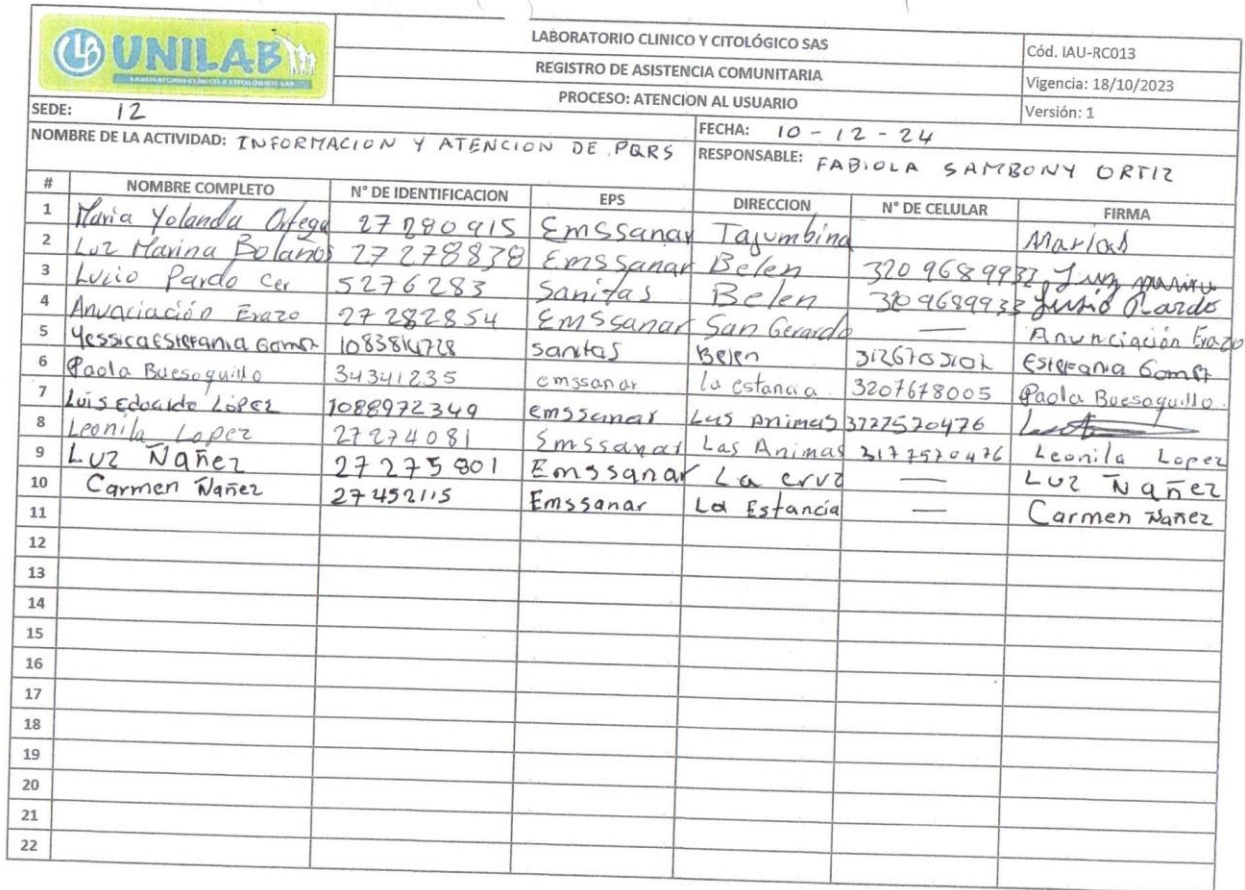 UNILAB
LABORATORIO CLINICO Y CITOLÓGICO SAS
LABORATORIO CLINICO Y CITOLÓGICO SAS
REGISTRO DE ASISTENCIA COMUNITARIA
PROCESO: ATENCION AL USUARIO
Cód. IAU-RC013
Vigencia: 18/10/2023
Versión: 1
SEDE: 12
FECHA: 10 - 12 - 24
NOMBRE DE LA ACTIVIDAD: INFORMACION Y ATENCION DE PQRS
RESPONSABLE: FABIOLA SAMBONY ORTIZ
# NOMBRE COMPLETO N° DE IDENTIFICACION EPS DIRECCION N° DE CELULAR FIRMA
1 Maria Yolanda Ortega 27280915 Emssanar Tajumbina
2 Luz Marina Bolaños 27278838 Emssanar Belen 3209689933 Luz Marina
3 Lucio Pardo Cer 5276283 Sanitas Belen 3209689933 Lucio Pardo
4 Anunciación Erazo 27282854 Emssanar San Gerardo — Anunciación Erazo
5 Yessica Estefania Gomez Sanitas Belen Estefania Gomez
6 Paola Buesaquillo 34341235 emssanar la estancia 3207678005 Paola Buesaquillo
7 Luis Eduardo López 1088972349 emssanar Las Animas
8 Leonila Lopez 27274081 Emssanar Las Animas 3177570476 Leonila Lopez
9 Luz Ñañez 27275801 Emssanar La cruz — Luz Ñañez
10 Carmen Ñañez 27452115 Emssanar La Estancia — Carmen Ñañez
11
12
13
14
15
16
17
18
19
20
21
22